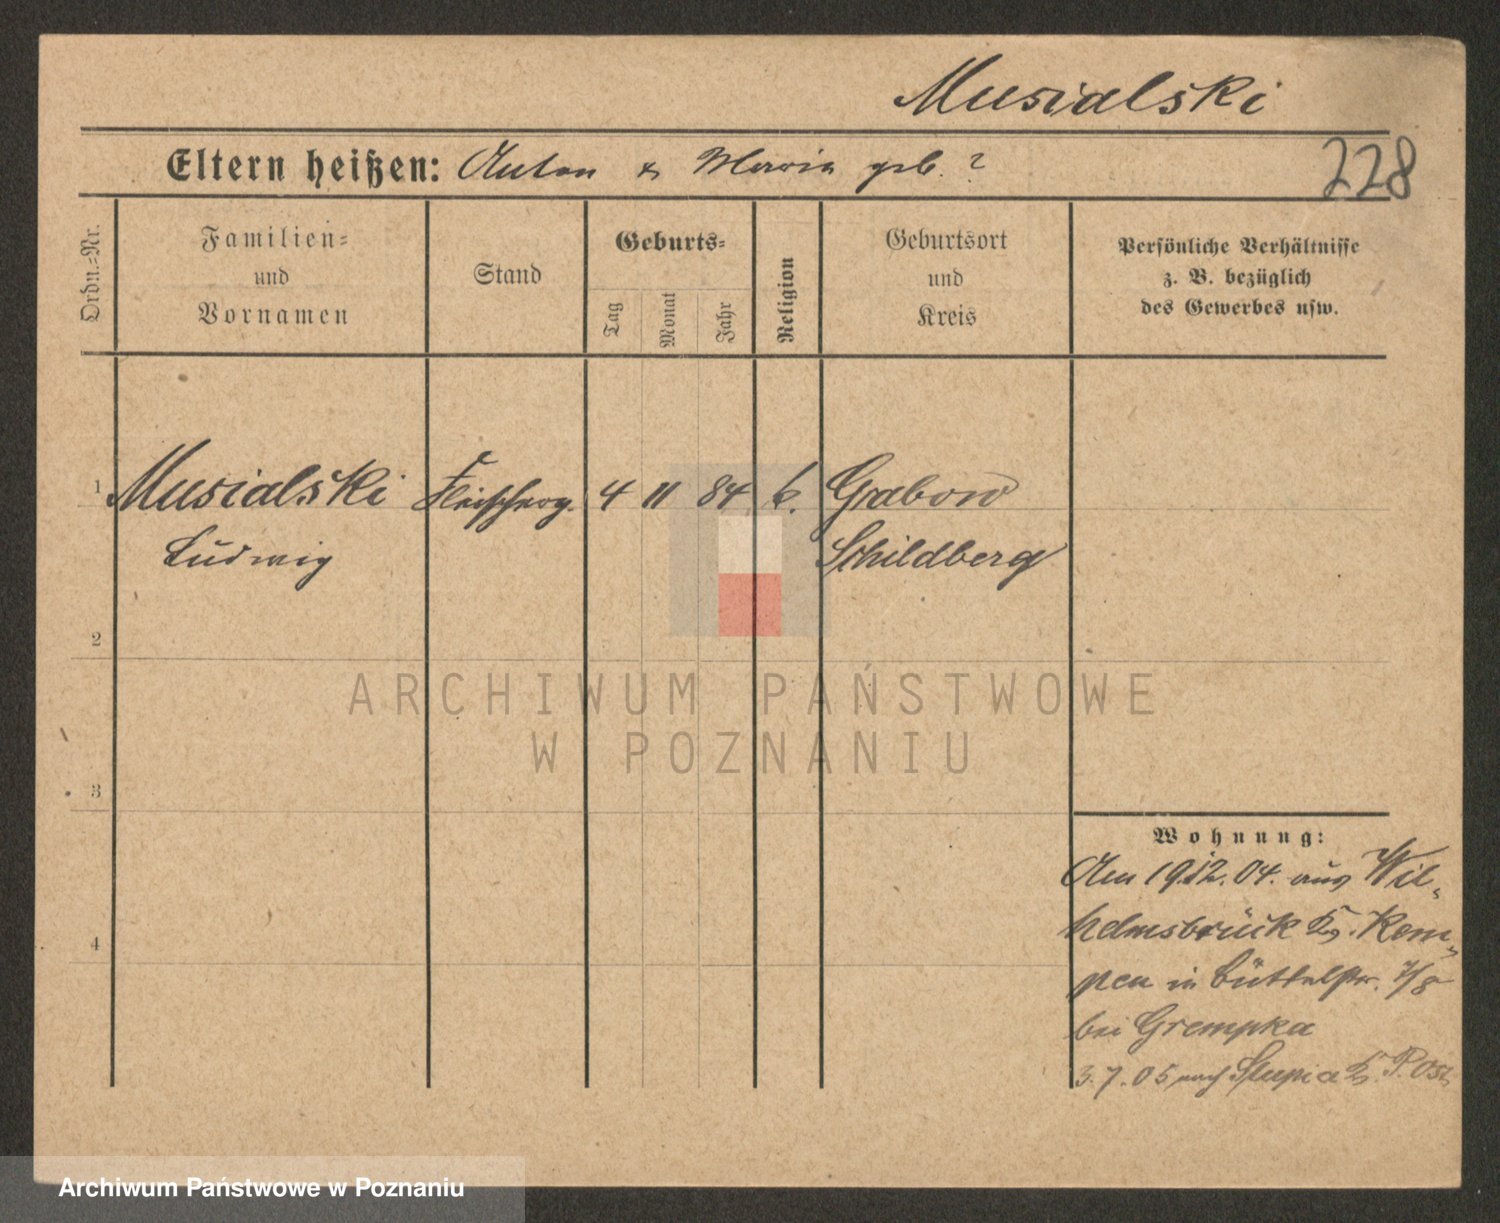 Musialski
Eltern heißen: Anton & Maria geb. ?
228
Ordn.-Nr.
Familien-
und
Vornamen
Stand
Geburts-
Tag
Monat
Jahr
Religion
Geburtsort
und
Kreis
Persönliche Verhältnisse
z. B. bezüglich
des Gewerbes usw.
1 Musialski Fleischerg. 4 11 84 k. Grabow
Ludwig Schildberg
2
3
4
Wohnung:
Am 19.12.04. aus Wil-
helmsbrück Kr. Kem-
pen in Büttelstr. 7/8
bei Grempka
3.7.05 nach Slupia Kr. P. Ost
ARCHIWUM PAŃSTWOWE
W POZNANIU
Archiwum Państwowe w Poznaniu